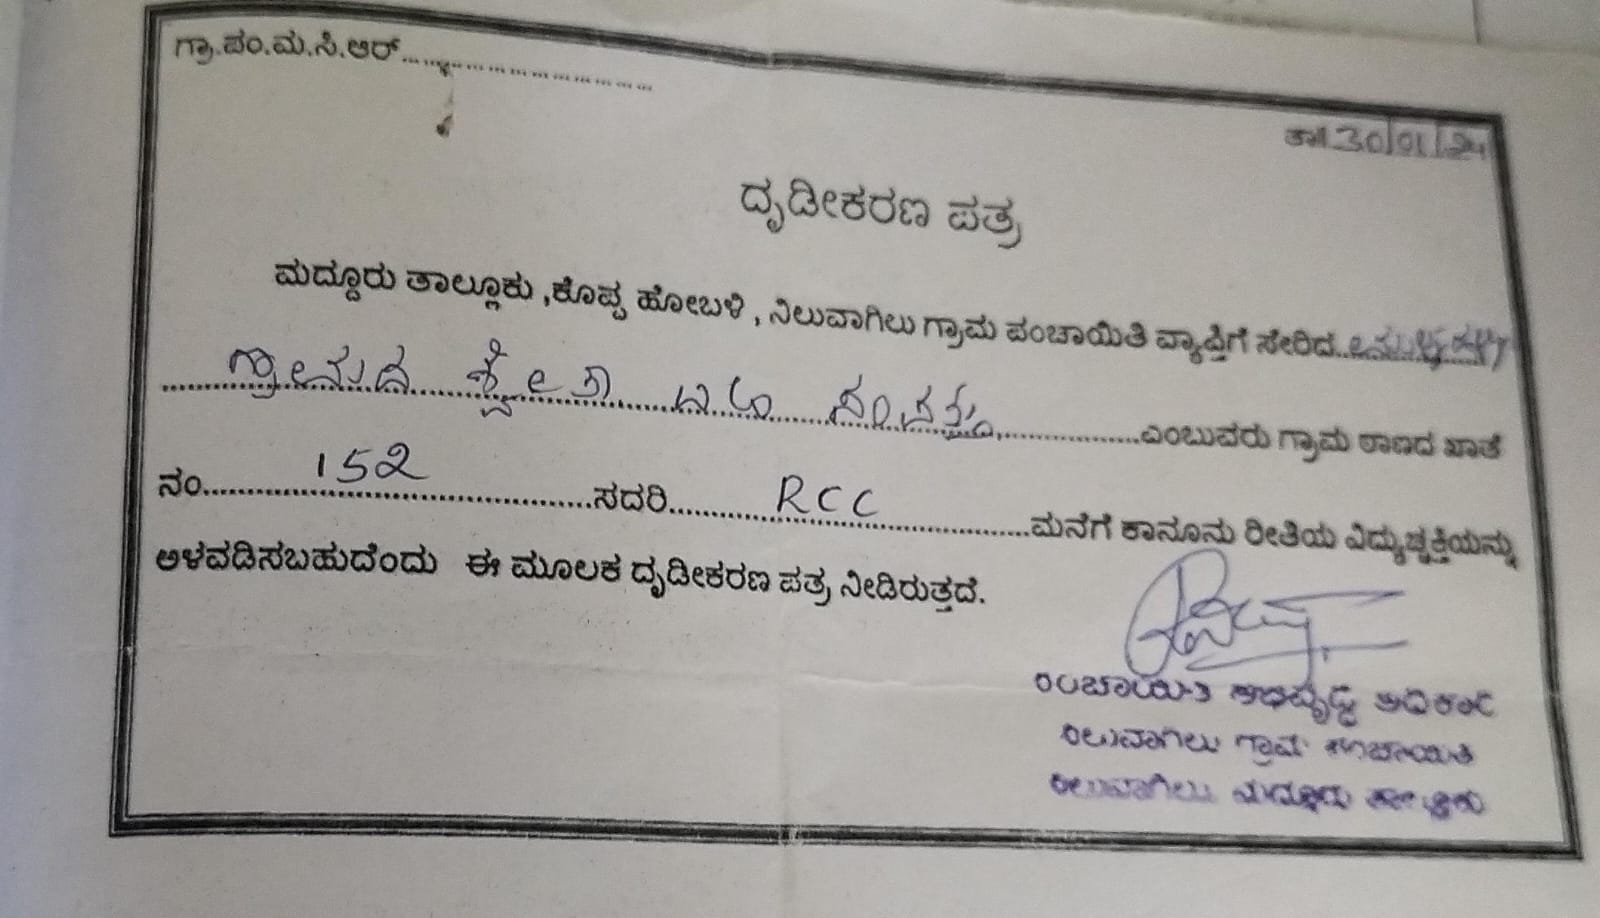 ಗ್ರಾ.ಪಂ.ಮ.ಸಿ.ಆರ್............................
ತಾ॥30/01/24
ದೃಡೀಕರಣ ಪತ್ರ
ಮದ್ದೂರು ತಾಲ್ಲೂಕು ,ಕೊಪ್ಪ ಹೋಬಳಿ , ನಿಲುವಾಗಿಲು ಗ್ರಾಮ ಪಂಚಾಯಿತಿ ವ್ಯಾಪ್ತಿಗೆ ಸೇರಿದ..
ಗ್ರಾಮದ ಶ್ವೇತಾ ಎಂಬುವರು ಗ್ರಾಮ ಠಾಣದ ಖಾತೆ
ನಂ. 152 ಸದರಿ RCC ಮನೆಗೆ ಕಾನೂನು ರೀತಿಯ ವಿದ್ಯುಚ್ಛಕ್ತಿಯನ್ನು
ಅಳವಡಿಸಬಹುದೆಂದು ಈ ಮೂಲಕ ದೃಡೀಕರಣ ಪತ್ರ ನೀಡಿರುತ್ತದೆ.
ಪಂಚಾಯಿತಿ ಅಭಿವೃದ್ಧಿ ಅಧಿಕಾರಿ
ನಿಲುವಾಗಿಲು ಗ್ರಾಮ ಪಂಚಾಯಿತಿ
ನಿಲುವಾಗಿಲು ಮದ್ದೂರು ತಾಲ್ಲೂಕು